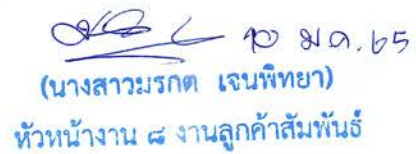 ๒๐ ม.ค. 65
(นางสาวมรกต เจนพิทยา)
หัวหน้างาน ๘ งานลูกค้าสัมพันธ์